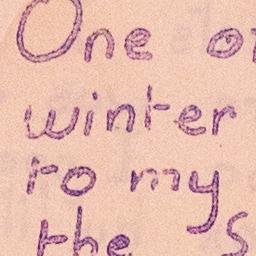 One of
winter
to my
the s